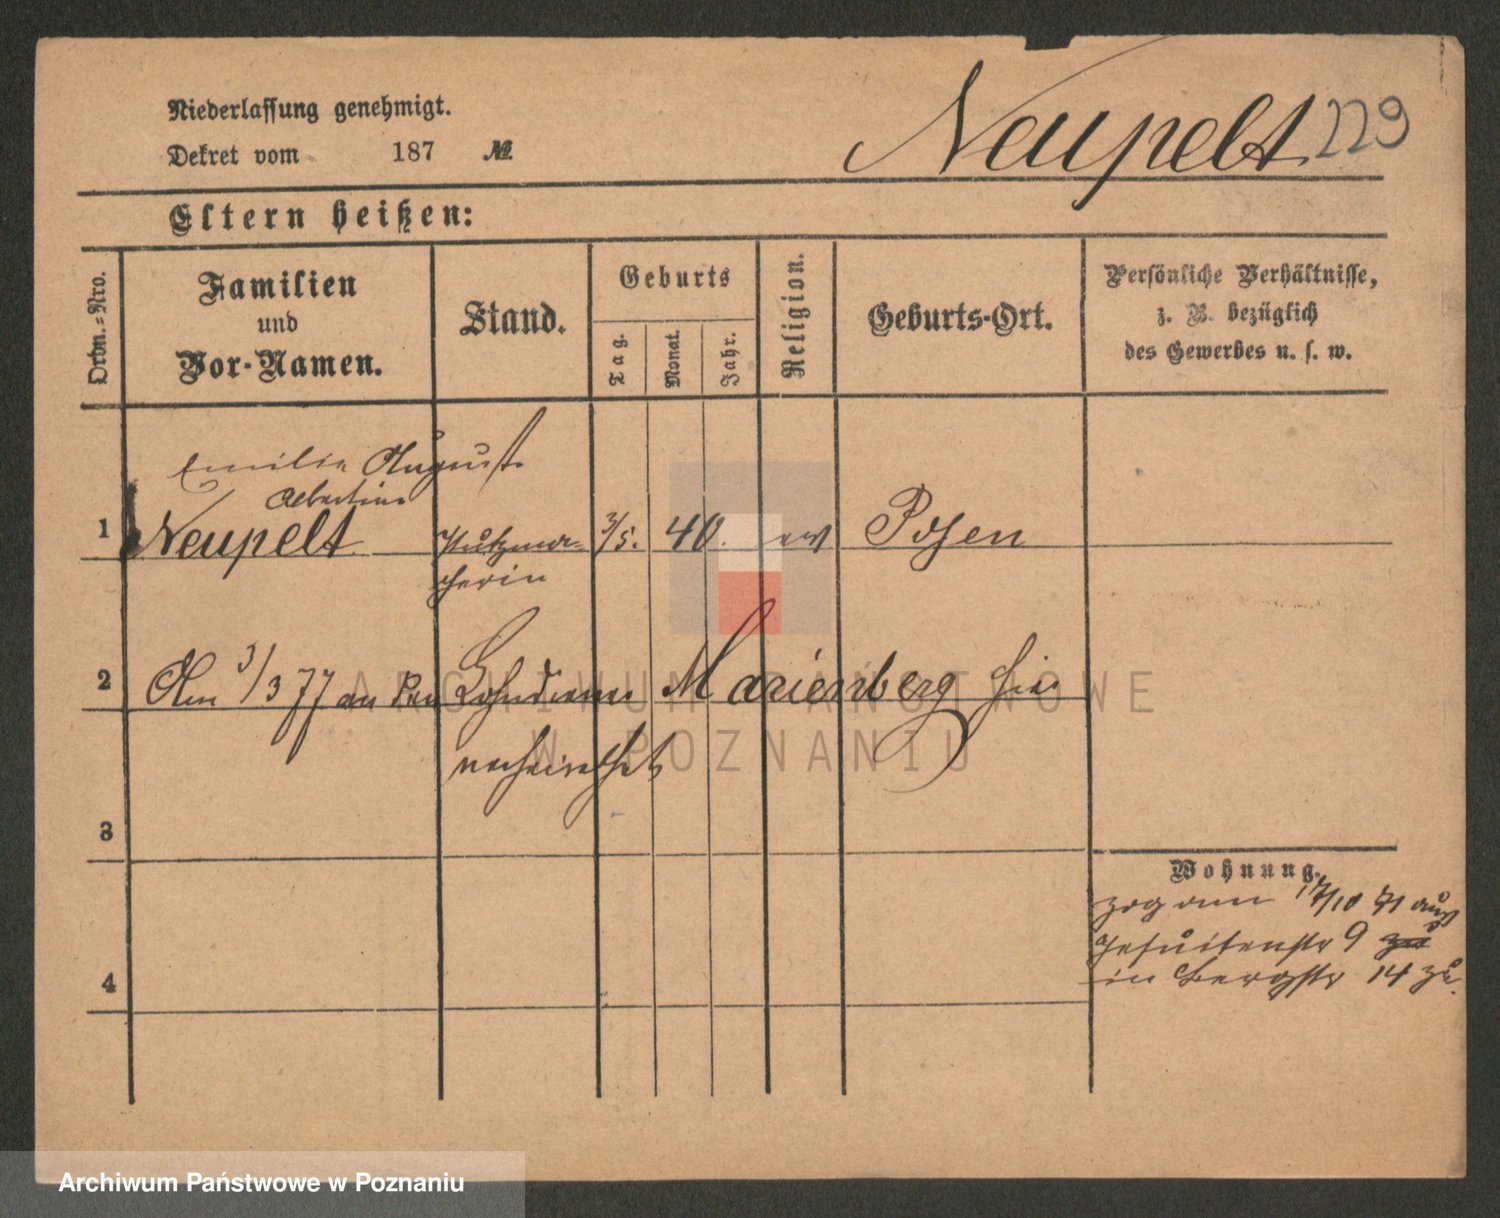 Niederlassung genehmigt.
Dekret vom 187 №
Neupelt 229
Eltern heißen:
Ordn.-Nro.
Familien
und
Vor-Namen.
Stand.
Geburts
Tag.
Monat.
Jahr.
Religion.
Geburts-Ort.
Persönliche Verhältnisse,
z. B. bezüglich
des Gewerbes u. s. w.
Emilie August
Albertine
1 Neupelt Putzma- 3/5. 40. ev Posen
cherin
2 Am 3/3 77 an den Lohndiener Marienberg hier
verheirathet
3
Wohnung.
zog am 17/10 71 aus
Jesuitenstr 9 zu
in Bergstr 14 zu.
4
ARCHIWUM PAŃSTWOWE
W POZNANIU
Archiwum Państwowe w Poznaniu